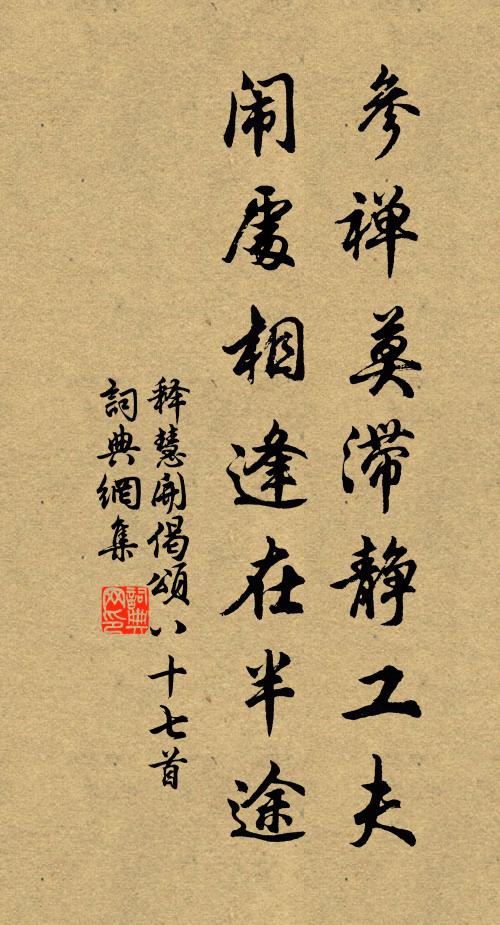 參禅莫滞静工夫
闹處相逢在半途
释慧開偈頌八十七首
詞典網集
詞典
网印